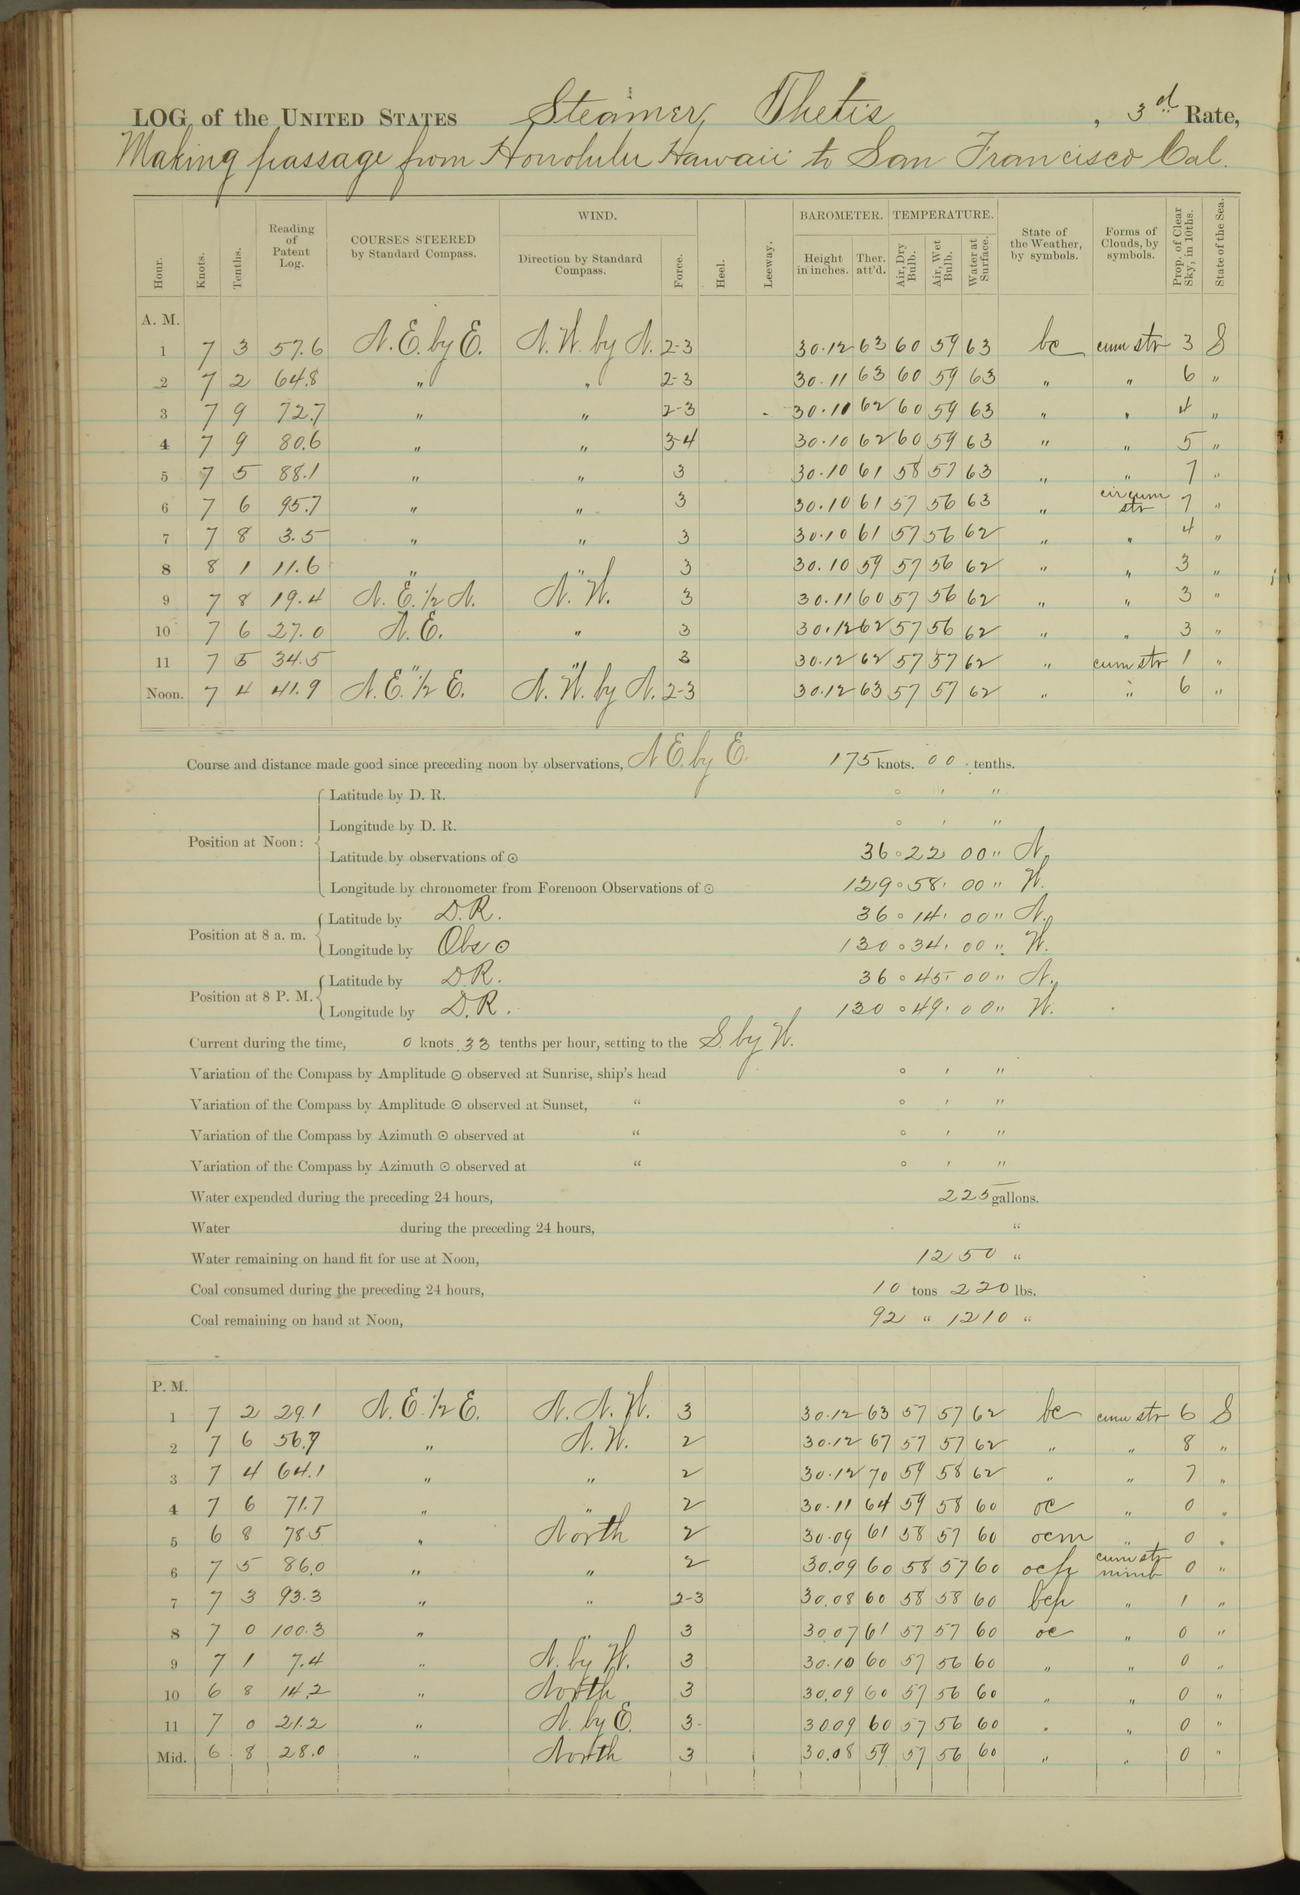 LOG of the UNITED STATES Steamer, Thetis, 3rd Rate,
Making passage from Honolulu Hawaii to San Francisco Cal.
Hour. Knots. Tenths. Reading of Patent Log. COURSES STEERED by Standard Compass. WIND. Direction by Standard Compass. Force. Heel. Leeway. BAROMETER. Height in inches. Ther. att'd. TEMPERATURE. Air, Dry Bulb. Air, Wet Bulb. Water at Surface. State of the Weather, by symbols. Forms of Clouds, by symbols. Prop. of Clear Sky, in 10ths. State of the Sea.
A. M.
1 7 3 57.6 N.E. by E. N.W. by N. 2-3 30.12 63 60 59 63 bc cum str 3 S
2 7 2 64.8 " " 2-3 30.11 63 60 59 63 " " 6 "
3 7 9 72.7 " " 2-3 30.10 62 60 59 63 " " 4 "
4 7 9 80.6 " " 3-4 30.10 62 60 59 63 " " 5 "
5 7 5 88.1 " " 3 30.10 61 58 57 63 " " 7 "
6 7 6 95.7 " " 3 30.10 61 57 56 63 " cir cum str 7 "
7 7 8 3.5 " " 3 30.10 61 57 56 62 " " 4 "
8 8 1 11.6 " " 3 30.10 59 57 56 62 " " 3 "
9 7 8 19.4 N.E. 1/2 N. N.W. 3 30.11 60 57 56 62 " " 3 "
10 7 6 27.0 N.E. " 3 30.12 62 57 56 62 " " 3 "
11 7 5 34.5 " " 3 30.12 62 57 57 62 " cum str 1 "
Noon. 7 4 41.9 N.E. 1/2 E. N.W. by N. 2-3 30.12 63 57 57 62 " " 6 "
Course and distance made good since preceding noon by observations, N E. by E. 175 knots. 00 tenths.
Position at Noon: Latitude by D. R. ° ' "
Longitude by D. R. ° ' "
Latitude by observations of ⊙ 36 ° 22 00 " N.
Longitude by chronometer from Forenoon Observations of ⊙ 129 ° 58 ' 00 " W.
Position at 8 a. m. Latitude by D.R. 36 ° 14 ' 00 " N.
Longitude by Obs ⊙ 130 ° 34 ' 00 " W.
Position at 8 P. M. Latitude by D.R. 36 ° 45 ' 00 " N.
Longitude by D.R. 130 ° 49 ' 00 " W.
Current during the time, 0 knots 33 tenths per hour, setting to the S. by W.
Variation of the Compass by Amplitude ⊙ observed at Sunrise, ship's head ° ' "
Variation of the Compass by Amplitude ⊙ observed at Sunset, " ° ' "
Variation of the Compass by Azimuth ⊙ observed at " ° ' "
Variation of the Compass by Azimuth ⊙ observed at " ° ' "
Water expended during the preceding 24 hours, 225 gallons.
Water during the preceding 24 hours, "
Water remaining on hand fit for use at Noon, 1250 "
Coal consumed during the preceding 24 hours, 10 tons 220 lbs.
Coal remaining on hand at Noon, 92 " 1210 "
P. M.
1 7 2 29.1 N.E. 1/2 E. N.N.W. 3 30.12 63 57 57 62 bc cum str 6 S
2 7 6 56.7 " N.W. 2 30.12 67 57 57 62 " " 8 "
3 7 4 64.1 " " 2 30.12 70 59 58 62 " " 7 "
4 7 6 71.7 " " 2 30.11 64 59 58 60 oc " 0 "
5 6 8 78.5 " North 2 30.09 61 58 57 60 ocm " 0 "
6 7 5 86.0 " " 2 30.09 60 58 57 60 ocp cum str nimb 0 "
7 7 3 93.3 " " 2-3 30.08 60 58 58 60 bcp " 1 "
8 7 0 100.3 " " 3 30.07 61 57 57 60 oc " 0 "
9 7 1 7.4 " N. by W. 3 30.10 60 57 56 60 " " 0 "
10 6 8 14.2 " North 3 30.09 60 57 56 60 " " 0 "
11 7 0 21.2 " N. by E. 3 30.09 60 57 56 60 " " 0 "
Mid. 6 8 28.0 " North 3 30.08 59 57 56 60 " " 0 "